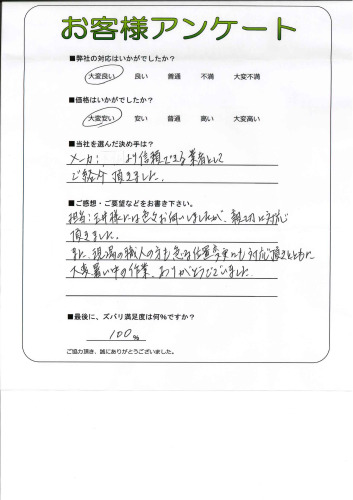 お客様アンケート
■弊社の対応はいかがでしたか?
大変良い 良い 普通 不満 大変不満
■価格はいかがでしたか?
大変安い 安い 普通 高い 大変高い
■当社を選んだ決め手は?
メーカーより信頼できる業者として
ご紹介頂きました。
■ご感想・ご要望などをお書き下さい。
担当:玉井様には色々お伺いしましたが、親切に対応
頂きました。
また、現場の職人の方も急な位置変更にも対応頂きとともに
大変暑い中の作業、ありがとうございました。
■最後に、ズバリ満足度は何%ですか?
100%
ご協力頂き、誠にありがとうございました。